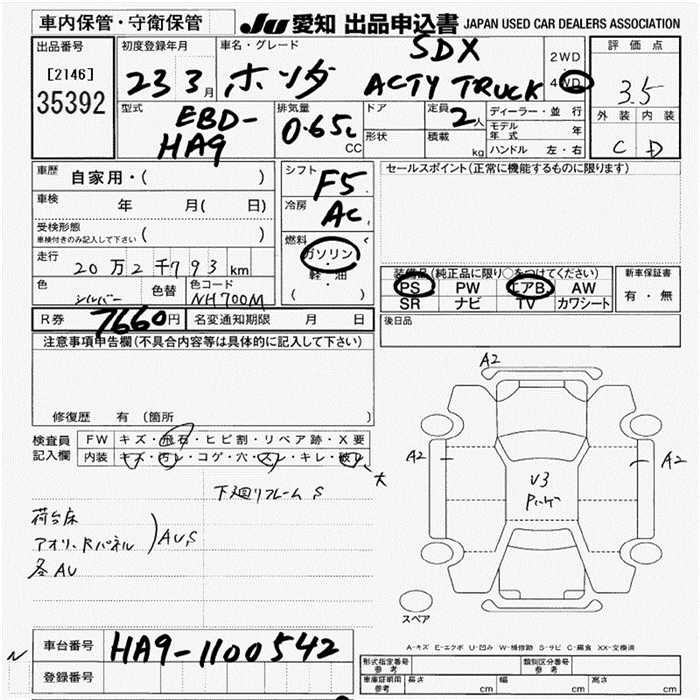 車内保管・守衛保管
JU 愛知 出品申込書 JAPAN USED CAR DEALERS ASSOCIATION
出品番号
[2146]
35392
初度登録年月
23 3月
車名・グレード
SDX
ホンダ ACTY TRUCK
2WD
4WD
評価点
3.5
外装 内装
C D
型式
EBD-
HA9
排気量
0.65L
CC
ドア
形状
定員
2人
積載
kg
ディーラー・並行
モデル年式 年
ハンドル 左・右
車歴 自家用・( )
車検 年 月( 日)
受検形態
車検付きのみ記入して下さい ( )
走行 20万2千793km
色 シルバー 色替 色コード NH700M
シフト F5
冷房 AC
燃料
ガソリン
・
軽・油
( )
セールスポイント(正常に機能するものに限ります)
装備品(純正品に限り○をつけてください)
PS PW エアB AW
SR ナビ TV カワシート
新車保証書
有・無
R券 7660円 名変通知期限 月 日
後日品
注意事項申告欄(不具合内容等は具体的に記入して下さい)
修復歴 有(箇所 )
検査員記入欄
FW キズ・飛石・ヒビ割・リペア跡・X要
内装 キズ・汚レ・コゲ・穴・スレ・キレ・破レ 大
下廻リフレーム S
荷台床
アオリ、Rパネル
AU,S
各AU
A2
A2
A2
V3
スペア
車台番号 HA9-1100542
登録番号
A-キズ E-エクボ U-凹み W-補修跡 S-サビ C-腐食 XX-交換済
形式指定番号 参考
類別区分番号 参考
車庫証明用 参考 長さ cm 幅 cm 高さ cm